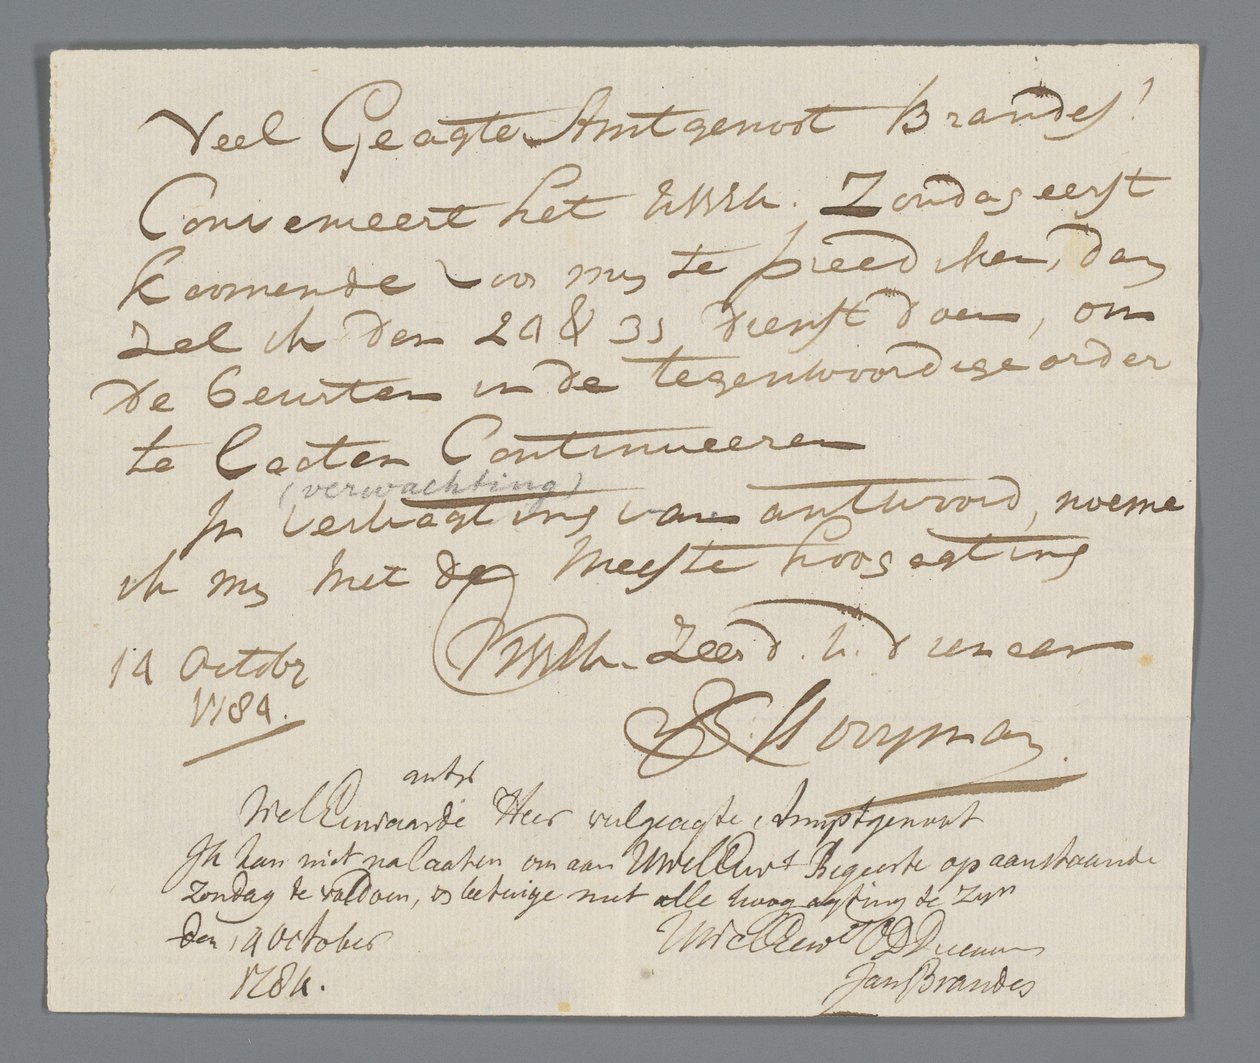 Veel Geagte Amtgenoot Brandes!
Convenieert het UWEh. Zondag eerst
koomende voor my te preediken, dan
zal ik den 24 & 31 dienst doen, om
de beurten in de tegenwoordige order
te laaten Continueeren
(verwachting)
In verwagting van antwoord, noeme
ik my met de meeste hoogagting
UWEh. Zeer d. w. dienaar
14 Octobr
1784.
Hooyman
antw
WelEerwaarde Heer veelgeagte Amptgenoot
Ik kan niet nalaaten om aan UwelEerwt Begeerte op aanstaande
Zondag te voldoen, betuige met alle hoogagting te Zyn
den 14 October
1784.
UwelEerwt DDienaar
Jan Brandes